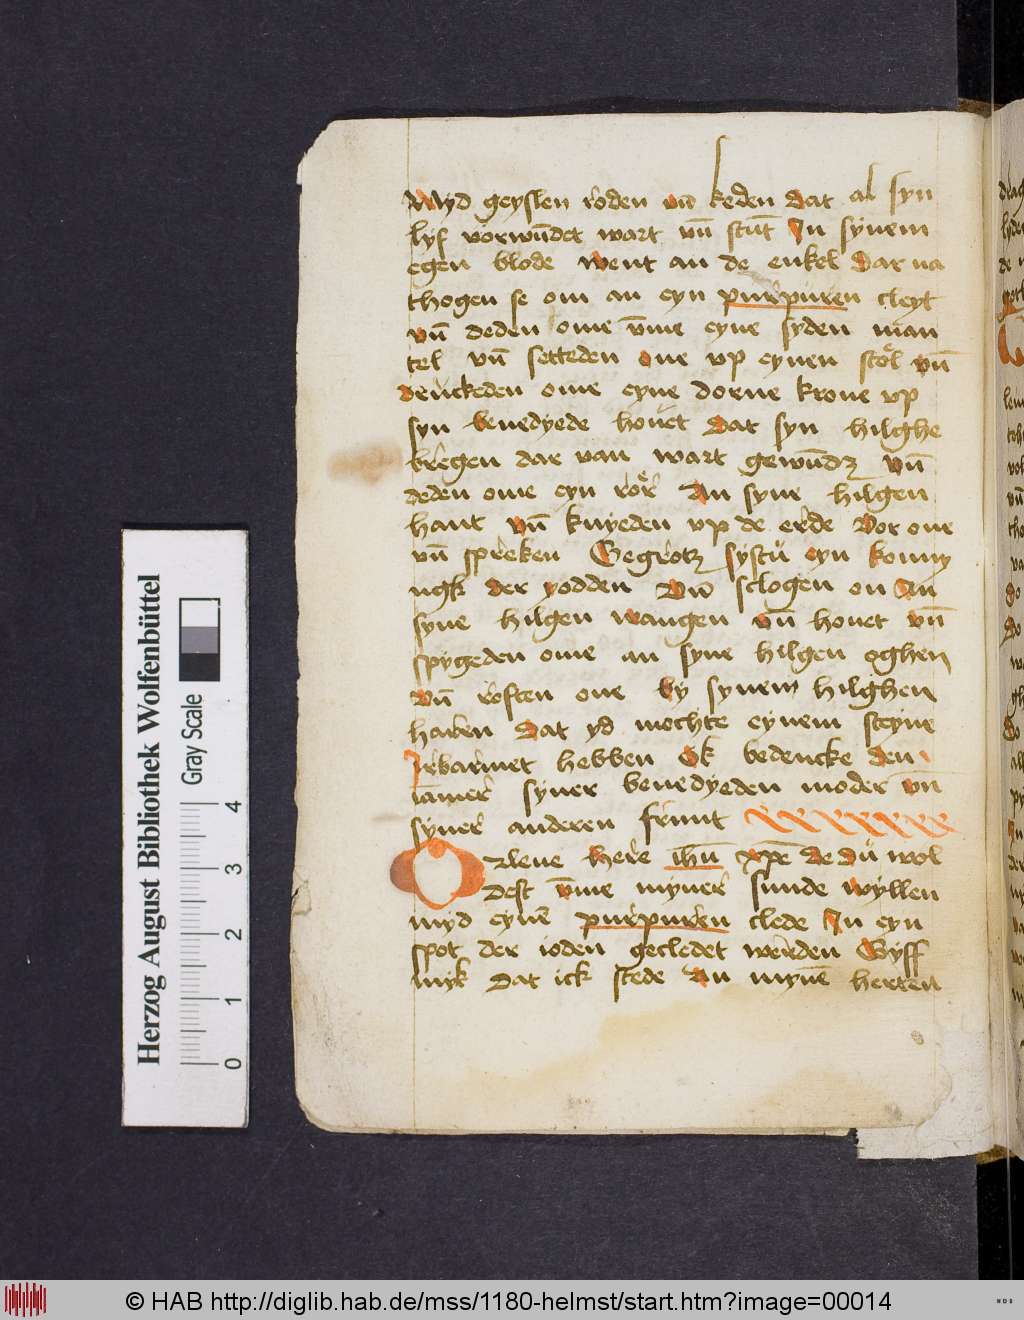 Myd geyslen roden vn̄ keden dat al syn
lyf vorwūdet wart vn̄ stūt In synem
egen blode went an de enkel dar na
thogen se om an eyn purpuren cleyt
vn̄ deden ome v̄me eyne syden man
tel vn̄ setteden one vp eynen stoͤl vn̄
deuckeden ome eyne dorne krone vp
syn benedyede houet dat syn hilghe
bregen dar van wart gewūdꝫ vn̄
deden ome eyn roͤr An syne hilgen
hant vn̄ knyeden vp de erde vor one
vn̄ spreken Gegrotꝫ systu eyn konny
ngk der yodden Vn̄ sclogen on An
syne hilgen wangen vn̄ houet vn̄
spygeden ome an syne hilgen oghen
vn̄ roften one by synem hilghen
haren dat yd mochte eynem steyne
Irbarmet hebben Ok bedencke den
iāmer syner benedyeden moder vn̄
syner anderen frunt
O leue here ih̄u xp̄e de du wol
dest v̄me myner sunde wyllen
myd eynē purpuren clede In eyn
spot der ioden gecledet werden Gyff
myk Dat ick stede An mynē herten
Herzog August Bibliothek Wolfenbüttel
Gray Scale
0 1 2 3 4
© HAB http://diglib.hab.de/mss/1180-helmst/start.htm?image=00014